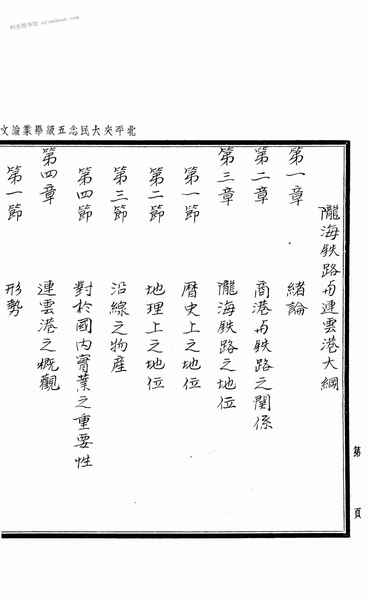 北平交大民念五級畢業論文
隴海鉄路与連雲港大綱
第一章 緒論
第二章 商港与鉄路之関係
第三章 隴海鉄路之地位
第一節 歷史上之地位
第二節 地理上之地位
第三節 沿線之物産
第四節 對於國内實業之重要性
第四章 連雲港之概觀
第一節 形勢
第 頁